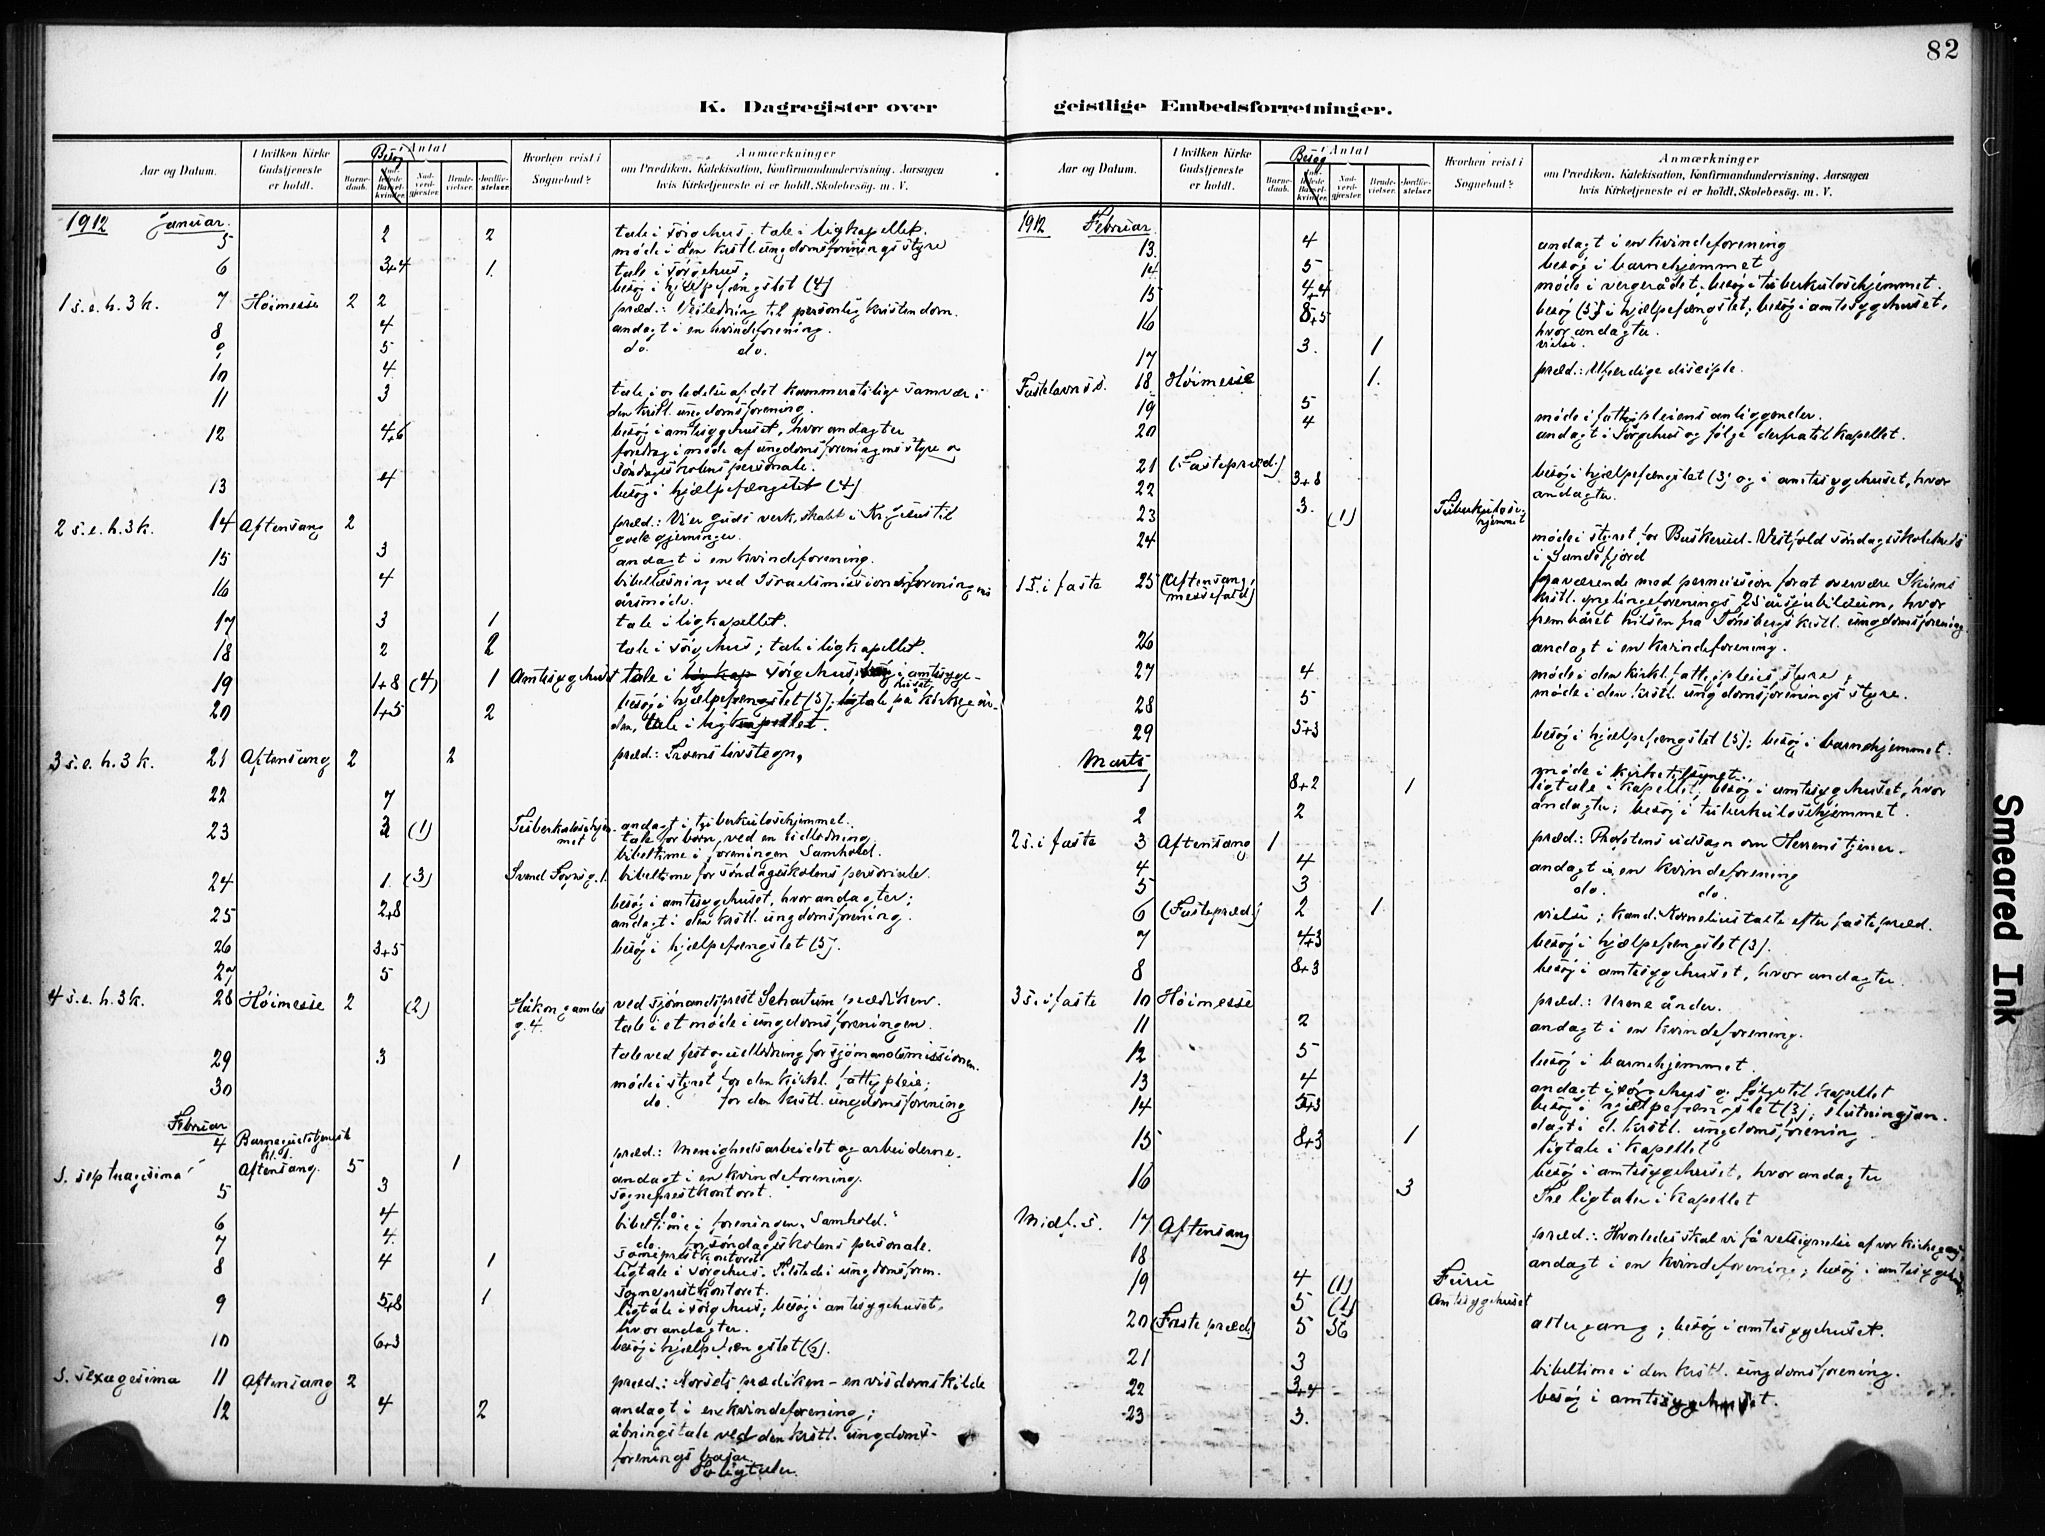 82
K. Dagregister over
Aar og Datum.
I hvilken Kirke Gudstjeneste er holdt.
Besøg
Antal
Barnedaab.
Indledede Barselkvinder.
Nadverdgjester.
Brudevielser.
Jordfæstelser.
Hvorhen reist i Sognebud?
Anmærkninger
om Prædiken, Katekisation, Konfirmandundervisning. Aarsagen
hvis Kirketjeneste ei er holdt. Skolebesøg. m. V.
1912 Januar.
5 2 2 tale i sørgehus. tale i ligkapellet.
møde i den kristl. ungdomsforenings styre
6 3+4 1. tale i sørgehus.
besøg i hjelpefængslet (4)
1 s. e. h. 3 k. 7 Høimesse 2 2 præd.: Veiledning til personlig kristendom.
8 4 andagt i en kvindeforening.
9 5 do. do.
10 4
11 3 tale i det kammeratslige samvær i
den kristl. ungdomsforening.
12 4+6 besøg i amtssygehuset, hvor andagter
foredrag i møde af ungdomsforeningens styre og
Søndagsskolens personale.
13 4 besøg i hjælpefængslet (4)
2 s. e. h. 3 k. 14 Aftensang 2 præd.: Vi er guds verk, skabt i Kr. Jesus til
gode gjerninger.
15 3 andagt i en kvindeforening.
16 4 bibellæsning ved Israelsmissionsforeningens
årsmøde.
17 3 1 tale i ligkapellet.
18 2 2 tale i sørgehus; tale i ligkapellet.
19 1+8 (4) 1 Amtssygehuset tale i sørgehus; besøg i amtssyge-
huset
20 1+5 2 besøg i hjælpefængslet (5); ligtale på kirkegår-
den, tale i ligkapellet.
3 s. e. h. 3 k. 21 Aftensang 2 2 præd.: Troens livstegn.
22 7
23 (1) Tuberkulosehjemmet andagt i tuberkulosehjemmet.
tale for børn, ved en uddeling
bibeltime i foreningen Samhold.
24 1. (3) Svend Foynsg. 1. bibeltime for søndagsskolens personale.
25 2+8 besøg i amtssygehuset, hvor andagter;
andagt i den kristl. ungdomsforening.
26 3+5 besøg i hjælpefængslet (5).
27 5
4 s. e. h. 3 k. 28 Høimesse 2 (2) Håkon gamles g. 4. ved sjømandsprest Schartum prædiken.
tale i et møde i ungdomsforeningen.
29 3 tale ved fest og uddeling for sjømandsmissionen.
30 møde i styret for den kirkl. fattigpleie;
do. for den kristl. ungdomsforening
Februar
4 Barnegudstjeneste
S. septuagesima Aftensang. 5 1 præd.: Menighedsarbeidet og arbeiderne.
5 3 andagt i en kvindeforening.
sogneprestkontoret.
6 4 do.
bibeltime i foreningen „Samhold."
7 4. do. for søndagsskolens personale.
8 4 1 sogneprestkontoret
ligtale i sørgehus. Tilstede i ungdomsforen.
9 5+8 1 sogneprestkontoret.
ligtale i sørgehus; besøg i amtssygehuset,
hvor andagter.
10 6+3 besøg i hjelpefængslet (6).
S. sexagesima 11 Aftensang 2 præd.: Korsets prædiken – en visdomskilde
12 4 2 andagt i en kvindeforening;
åbningstale ved den kristl. ungdoms-
forenings basar.
To ligtaler.
geistlige Embedsforretninger.
Aar og Datum.
I hvilken Kirke Gudstjeneste er holdt.
Besøg
Antal
Barnedaab.
Indledede Barselkvinder.
Nadverdgjester.
Brudevielser.
Jordfæstelser.
Hvorhen reist i Sognebud?
Anmærkninger
om Prædiken. Katekisation, Konfirmandundervisning. Aarsagen
hvis Kirketjeneste ei er holdt. Skolebesøg. m. V.
1912 Februar
13 4 andagt i en kvindeforening
14 5 besøg i barnehjemmet
15 4+4 møde i vergerådet. besøg i tuberkulosehjemmet.
16 8+5 besøg (5) i hjælpefængslet; besøg i amtssygehuset,
hvor andagter.
17 3. 1 vielse.
Fastelavnss. 18 Høimesse 1. præd.: Uferdige disciple.
19 5 møde i fattigpleiens anliggender.
20 4 andagt i Sørgehus og følge derfra til kapellet.
21 (Fastepræd.)
22 3+8 besøg i hjælpefængslet (3) og i amtssygehuset, hvor
andagter.
23 3. (1) Tuberkulosehjemmet
24 møde i styret for Buskerud-Vestfold søndagsskolekreds
i Sandefjord
1 S. i faste 25 (Aftensang,
messefald)
fraværende med permission for at overvære Skiens
kristl. ynglingeforenings 25 årsjubilæum, hvor
frembåret hilsen fra Tønsbergs kristl. ungdomsforening.
26 andagt i en kvindeforening.
27 4 møde i den kirkl. fattigpleies styre;
28 5 møde i den kristl. ungdomsforenings styre.
29 5+3 besøg i hjælpefængslet (5); besøg i barnehjemmet.
Marts
møde i kirketilsynet.
1 8+2 1 ligtale i kapellet, besøg i amtssygehuset, hvor
2 2 andagter; besøg i tuberkulosehjemmet.
2 s. i faste 3 Aftensang 1 præd.: udsagn om Herrens tjener.
4 4 andagt i en kvindeforening
5 3 do. do.
6 (Fastepræd.) 2 1. vielse; kand. Kornelius talte efter fastepræd.
7 4+3 besøg i hjælpefængslet (3).
8 8+3 besøg i amtssygehuset, hvor andagter.
3 s. i faste 10 Høimesse præd.: Urene ånder.
11 2 andagt i en kvindeforening.
12 5 besøg i barnehjemmet.
13 4 andagt i sørgehus og følge til kapellet
14 5+3 besøg i hjælpefængslet (3); slutningsan-
dagt i d. kristl. ungdomsforening
15 8+3 1 ligtale i kapellet
besøg i amtssygehuset, hvor andagter
16 3 Tre ligtaler i kapellet
Midf. s. 17 Aftensang præd.: Hvorledes skal vi få velsignelse af vor kirkegang
18 andagt i en kvindeforening; besøg i amtssygehuset
19 4 (1) Furu
5 (1) Amtssygehuset
20 (Fastepræd.) 5 56 altergang; besøg i amtssygehuset.
21 3
22 3+4 bibeltime i den kristl. ungdomsforening.
23 3. besøg i amtssygehuset.
Smeared Ink